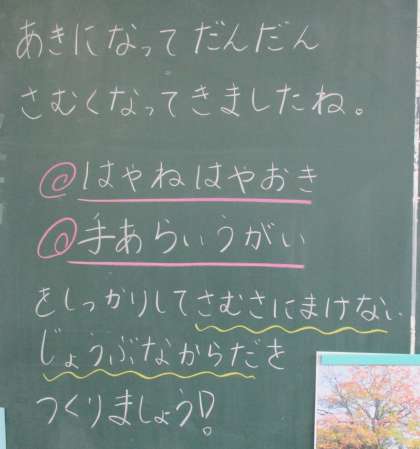 あきになってだんだん
さむくなってきましたね。
◎はやねはやおき
◎手あらいうがい
をしっかりしてさむさにまけない
じょうぶなからだを
つくりましょう!